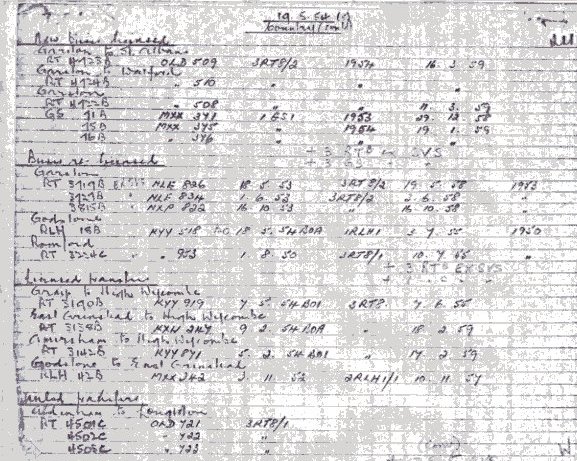 19. 5. 54 (c)
Country (cont)
New Buses licensed
Garston to St Albans
RT 4723B OLD 509 3RT8/2 1954 16. 3. 59
Garston to Watford
RT 4724B " 510 " " "
Garston
RT 4722B " 508 " " 11. 3. 59
GS 71B MXX 371 1GS1 1953 29. 12. 58
75B MXX 375 " 1954 19. 1. 59
76B " 376 " " "
+ 3 RTs SVS
+ 3 GS
Buses re-licensed
Garston
RT 3719B EXSVS NLE 826 18. 5. 53 3RT8/2 19. 5. 58 1953
3727B " NLE 834 1. 6. 53 3RT8/2 2. 6. 58 "
3815B " NXP 822 16. 10. 53 " 16. 10. 58 "
Godstone
RLH 18B KYY 518 18. 5. 54 BOA 1RLH1 3. 7. 55 1950
Romford
RT 3224C " 953 1. 8. 50 3RT8/1 10. 7. 55 "
+ 3 RTs EX SVS
Licensed transfers
Grays to High Wycombe
RT 3190B KYY 919 7. 5. 54 BO1 3RT8 7. 6. 55
East Grinstead to High Wycombe
RT 3138B KXW 247 9. 2. 54 BOA " 18. 2. 59
Amersham to High Wycombe
RT 3142B KYY 871 5. 2. 54 BO1 " 17. 2. 59
Godstone to East Grinstead
RLH 42B MXX 242 3. 11. 52 2RLH1/1 10. 11. 57
transfers
Aldenham to
RT 4501C OLD 721 3RT8/1
4502C " 722 "
4503C " 723 "
(cont)